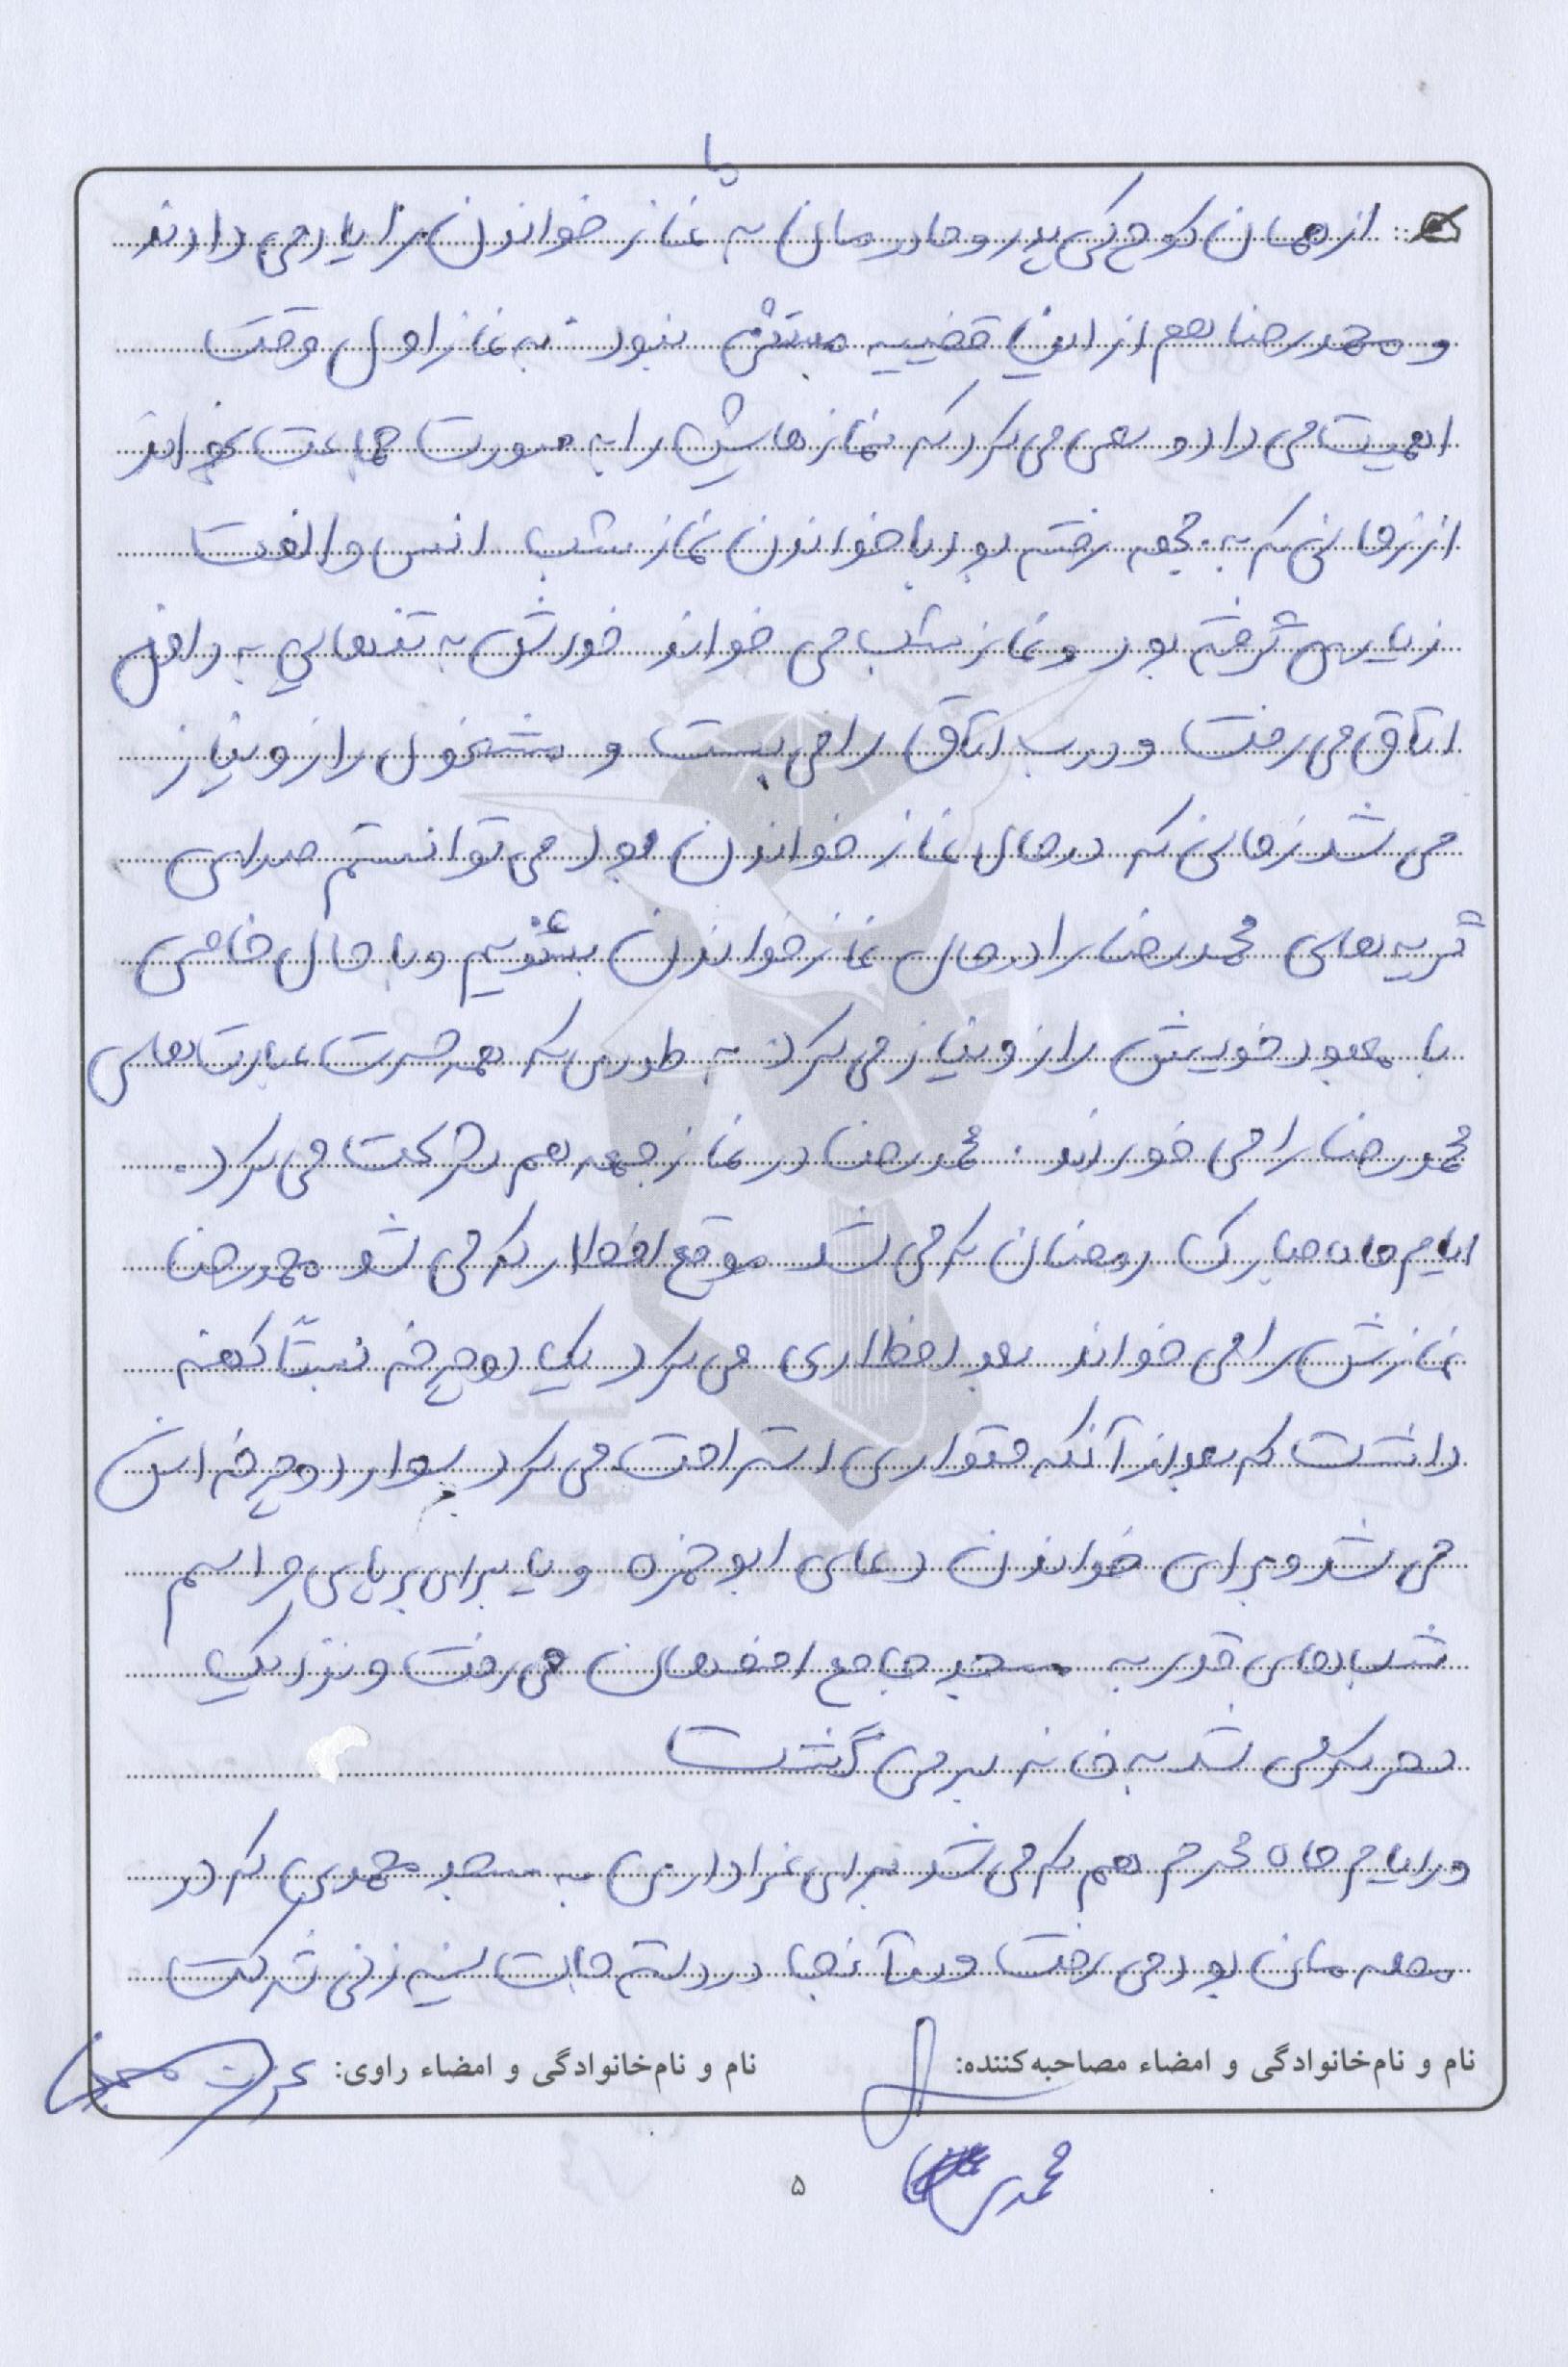 ما
از همان کوچکی پدر و مادرمان به نماز خواندن را یاد می دادند
و محمدرضا هم از این قضییه مستثنی نبود. به نماز اول وقت
اهمیت می داد و سعی می کرد که نمازهایش را به صورت جماعت بخواند
از زمانی که به جبهه رفته بود با خواندن نماز شب انس و الفت
زیادی گرفته بود و نماز شب می خواند خودش به تنهایی به داخل
اتاق می رفت و درب اتاق را می بست و مشغول راز و نیاز
می شد زمانی که در حال نماز خواندن بود می توانستم صدای
گریه های محمدرضا را در حال نماز خواندن بشنویم و با حال خاصی
با معبود خویش راز و نیاز می کرد به طوری که همه حسرت عبادت های
محمدرضا را می خوردند. محمدرضا در نماز جمعه هم شرکت می کرد.
ایام ماه مبارک رمضان که می شد موقع افطار که می شد محمدرضا
نمازش را می خواند بعد افطاری می کرد یک دوچرخه نسبتاً کهنه
داشت که بعد از آنکه مقداری استراحت می کرد سوار دوچرخه اش
می شد و برای خواندن دعای ابوحمزه و یا برای برپایی مراسم
شب های قدر به مسجد جامع اصفهان می رفت و نزدیک
سحر که می شد به خانه بر می گشت
در ایام ماه محرم هم که می شد برای عزاداری به مسجد محمدی که در
محله مان بود می رفت و در آنجا در دسته جات سینه زنی شرکت
نام و نام‌خانوادگی و امضاء مصاحبه‌کننده:
نام و نام‌خانوادگی و امضاء راوی:
۵